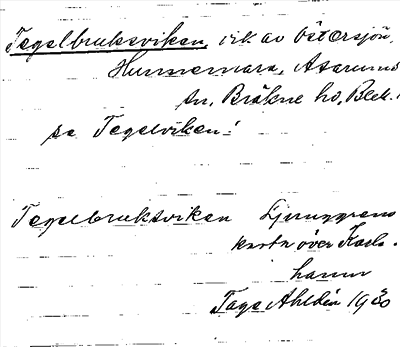 Tegelbruksviken, vik av Östersjön,
Hunnemara, Asarums
sn, Bräkne hd, Blek.
se Tegelviken!
Tegelbruksviken Ljunggrens
karta över Karls-
hamn
Tage Ahldén 1930